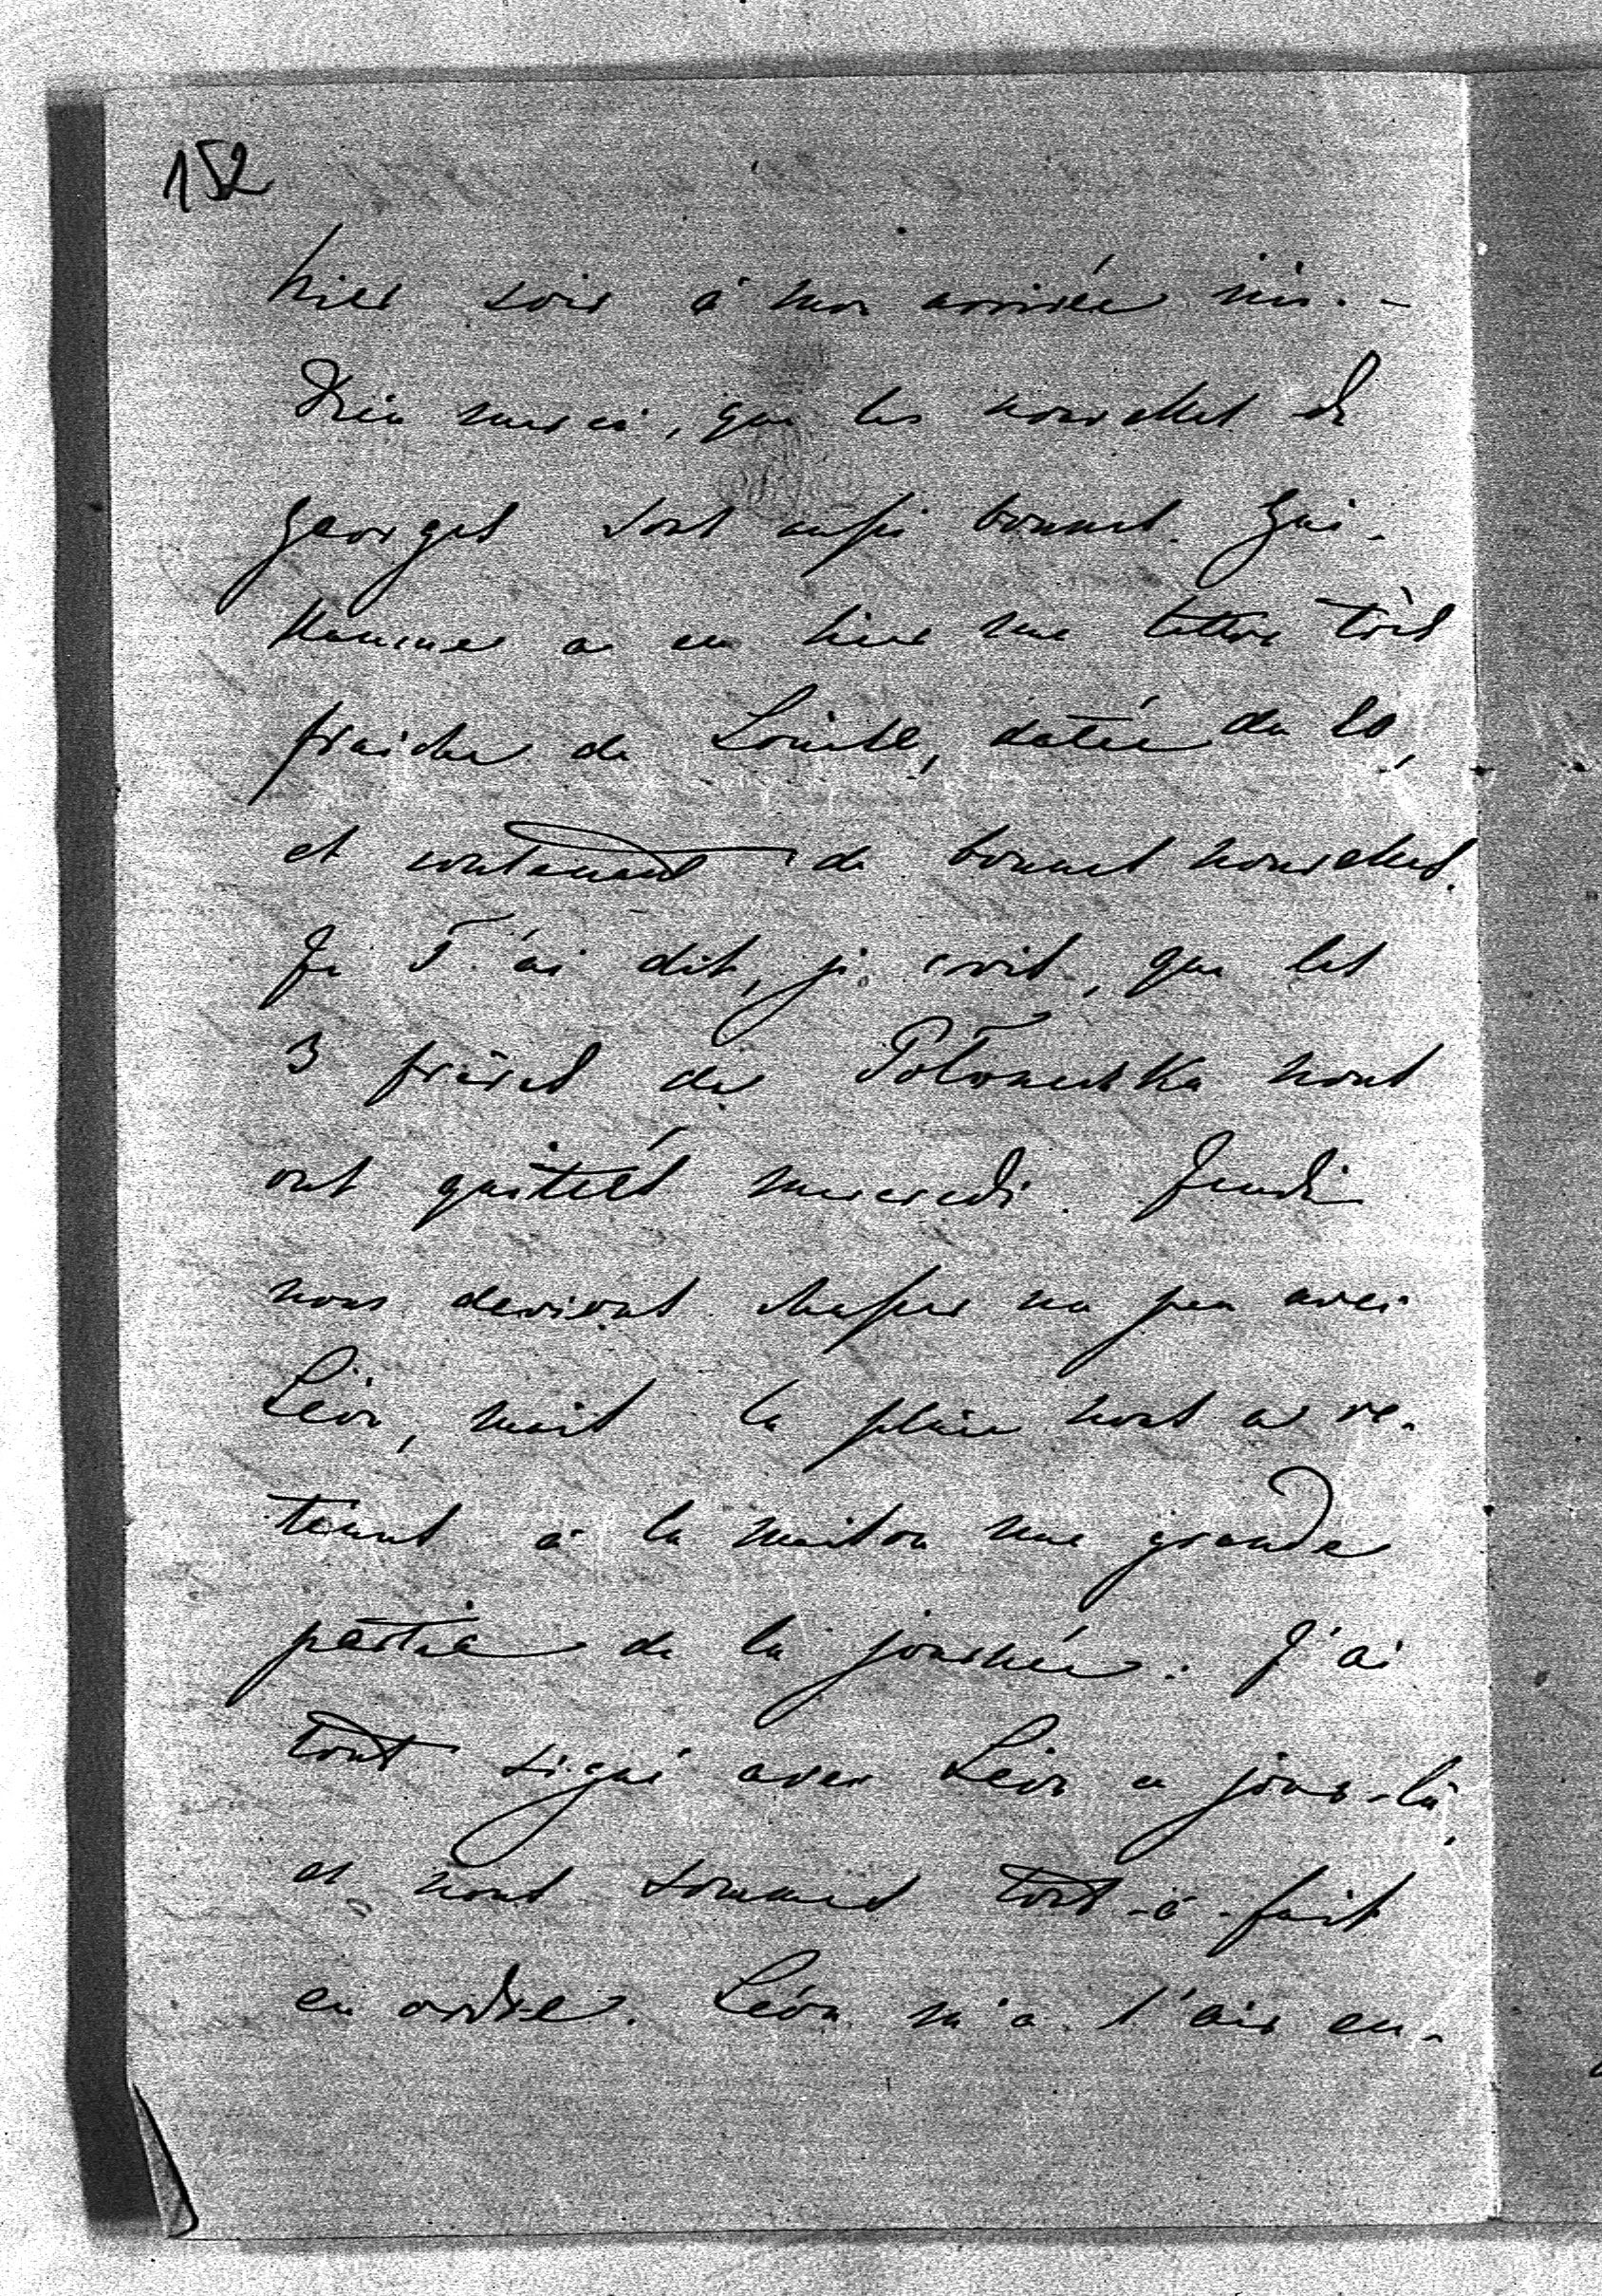 152
hier soir à mon arrivée ici. -
Dieu merci, que les nouvelles de
Georges sont aussi bonnes. Gui-
llaume a eu hier une lettre très
fraiche de Louise, datée du 20,
et contenant de bonnes nouvelles.
Je T'ai dit, je crois, que les
3 frères de Potomska nous
ont quittés mercredi. Jeudi
nous devions chasser un peu avec
Léon, mais la pluie nous a re-
tenus à la maison une grande
partie de la journée. J'ai
tout signé avec Léon ce jour-là,
et nous sommes tout-à-fait
en ordre. Léon m'a l'air en-